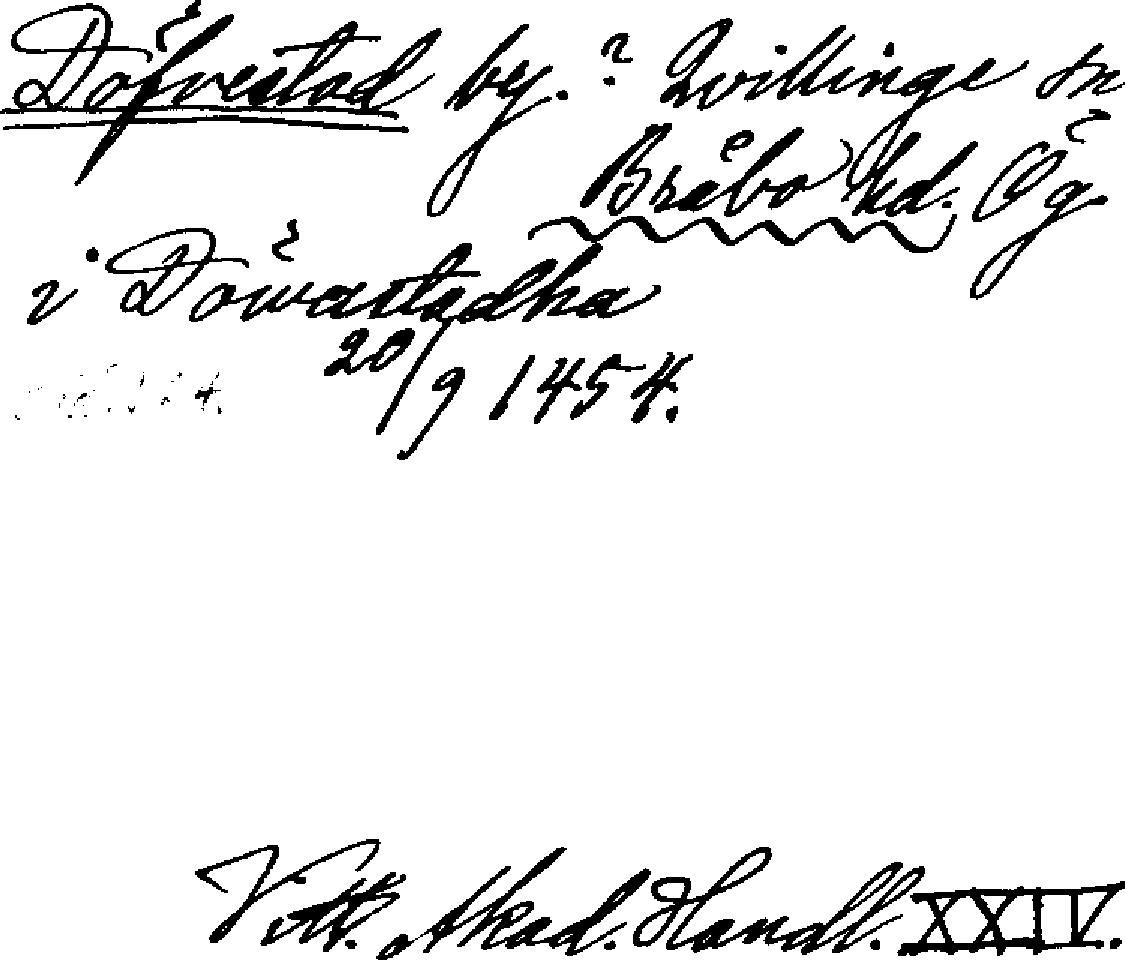 Döfvestad by.? Qvillinge sn
Bråbo hd. Ög.
i Döwastadha
20/9 1454.
Vitt. Akad. Handl. XXIV.